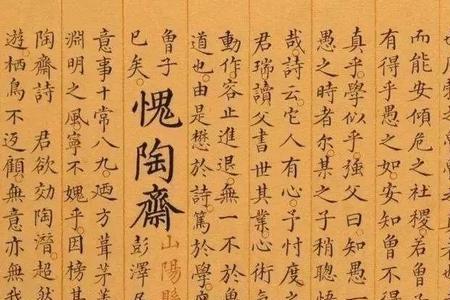 而能安傾危之社稷若曾
有得乎愚之如安知曾不得
真乎學似乎強父曰知愚
愚之時者尔某之子稍聰悟
哉詩云它人有心予忖度之
君瑞讀父書世其業心術氣
動作容止進退無一不於
道也由是懋於詩篤於學
魯子
巳矣
愧陶齋
山陽縣
彭澤
意事十常八九廼方葺茅
淵明之風寧不媿乎因榜其
陶齋詩 君欲効陶潛超然
遊栖鳥不返顧無意亦無我